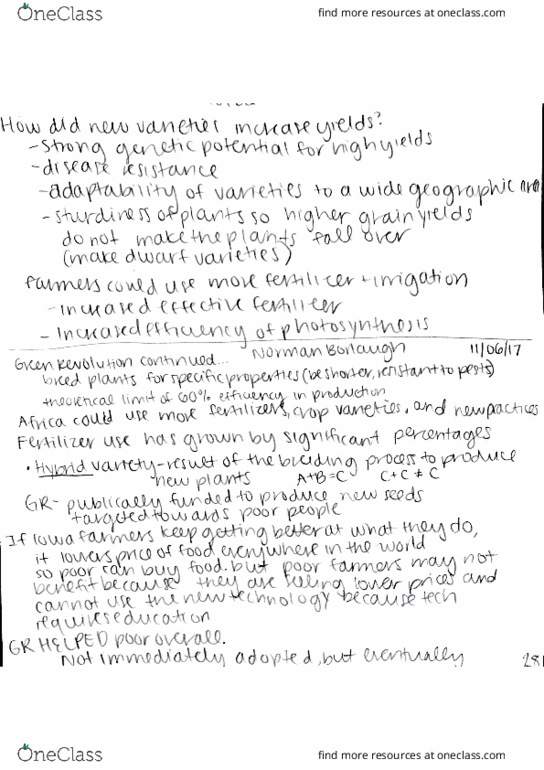 OneClass
find more resources at oneclass.com
How did new varieties increase yields?
-strong genetic potential for high yields
-disease resistance
-adaptability of varieties to a wide geographic area
-sturdiness of plants so higher grain yields
do not make the plants fall over
(make dwarf varieties)
Farmers could use more fertilizer + irrigation
-increased effective fertilizer
-increased efficiency of photosynthesis
Norman Borlaugh 11/06/17
Green Revolution continued...
bred plants for specific properties (be shorter, resistant to pests)
theoretical limit of 60% efficiency in production
Africa could use more fertilizers, crop varieties, and new practices
Fertilizer use has grown by significant percentages
• Hybrid variety-result of the breeding process to produce
new plants A+B=C C+C ≠ C
GR- publically funded to produce new seeds
targeted towards poor people
If Iowa farmers keep getting better at what they do,
it lowers price of food everywhere in the world
so poor can buy food. but poor farmers may not
benefit because they are feeling lower prices and
cannot use the new technology because tech
requires education
GR HELPED poor overall.
Not immediately adopted, but eventually
OneClass
find more resources at oneclass.com